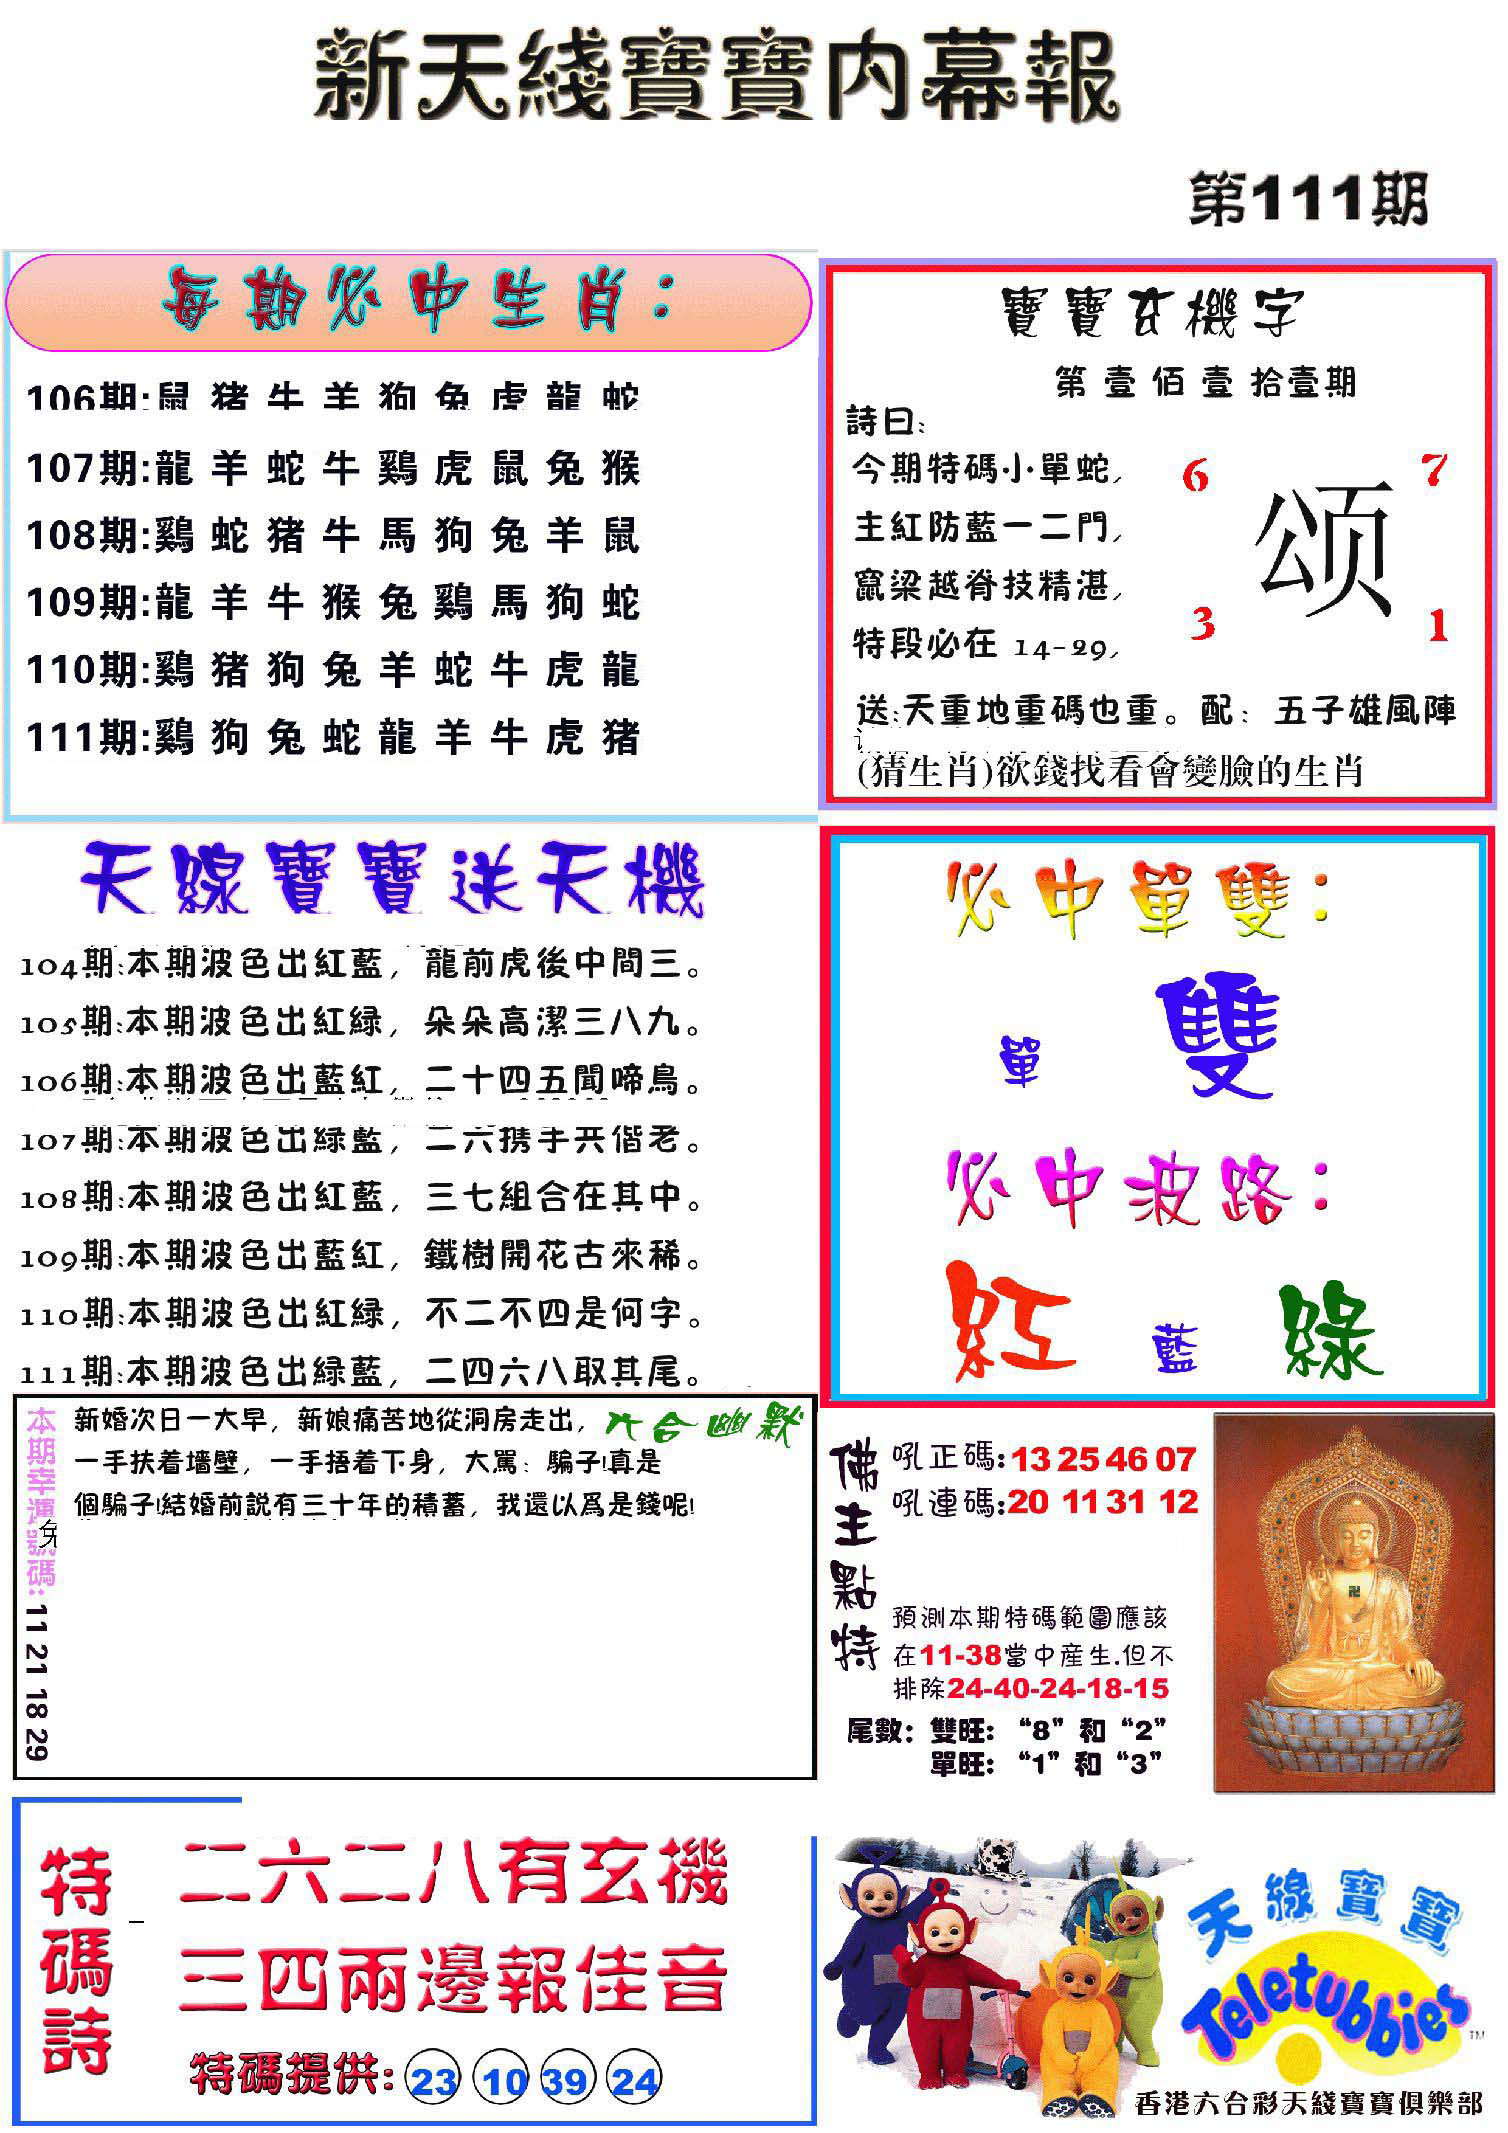 新天綫寶寶内幕報
第111期
每期必中生肖：
106期:鼠猪牛羊狗兔虎龍蛇
107期:龍羊蛇牛鷄虎鼠兔猴
108期:鷄蛇猪牛馬狗兔羊鼠
109期:龍羊牛猴兔鷄馬狗蛇
110期:鷄猪狗兔羊蛇牛虎龍
111期:鷄狗兔蛇龍羊牛虎猪
寶寶玄機字
第壹佰壹拾壹期
詩曰:
今期特碼小單蛇,
主紅防藍一二門,
竄梁越脊技精湛,
特段必在 14-29,
6 7
颂
3 1
送:天重地重碼也重。配: 五子雄風陣
(猜生肖)欲錢找看會變臉的生肖
天線寶寶送天機
104期:本期波色出紅藍, 龍前虎後中間三。
105期:本期波色出紅緑, 朵朵高潔三八九。
106期:本期波色出藍紅, 二十四五聞啼鳥。
107期:本期波色出緑藍, 二六携手共偕老。
108期:本期波色出紅藍, 三七組合在其中。
109期:本期波色出藍紅, 鐵樹開花古來稀。
110期:本期波色出紅緑, 不二不四是何字。
111期:本期波色出緑藍, 二四六八取其尾。
必中單雙：
單 雙
必中波路：
紅 藍 綠
本期幸運號碼: 11 21 18 29
六合幽默
新婚次日一大早, 新娘痛苦地從洞房走出,
一手扶着墻壁, 一手捂着下身, 大駡: 騙子!真是
個騙子!結婚前説有三十年的積蓄, 我還以爲是錢呢!
佛主點特
吼正碼:13 25 46 07
吼連碼:20 11 31 12
預測本期特碼範圍應該
在11-38當中産生.但不
排除24-40-24-18-15
尾數: 雙旺: “8”和“2”
單旺: “1”和“3”
特碼詩
二六二八有玄機
三四兩邊報佳音
特碼提供: 23 10 39 24
天線寶寶
Teletubbies
TM
香港六合彩天綫寶寶俱樂部